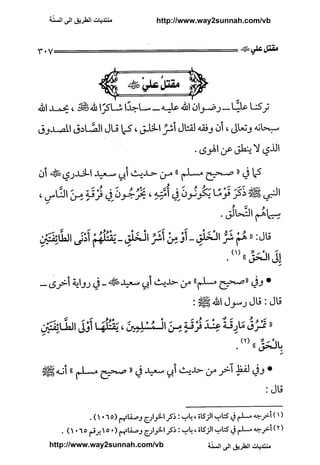 منتديات الطريق الى السنّة http://www.way2sunnah.com/vb
مقتل علي ٣٠٧
مقتلُ عليّ
تركنا عليًّا ـ رضـوان الله عليـه ـ سـاجدًا شـاكرًا لله ﷿، يحمـد الله
سبحانه وتعالى، أن وفقه لقتال أشرِّ الخلـق، كـما قـال الصَّـادق المصـدوق
الذي لا ينطق عن الهوى.
كما في «صـحيح مسـلم» مـن حـديث أبي سـعيد الخـدري ﵁ أن
النبي ﷺ ذَكَرَ قَوْمًا يَكُونُـونَ فِي أُمَّتِـهِ، يَخْرُجُـونَ فِي فُرْقَـةٍ مِـنَ النَّـاسِ،
سِيمَاهُم التَّحالُق.
قال: «هُمْ شَرُّ الْخَلْقِ ـ أَوْ مِنْ أَشَرِّ الْخَلْقِ ـ يَقْتُلُهُمْ أَدْنَى الطَّائِفَتَيْنِ
إِلَى الْحَقِّ» (١).
• وفي «صحيح مسلم» من حديث أبي سعيد ﵁ ـ في رواية أخرى ـ
قال: قال رسول الله ﷺ:
« تَمْـرُقُ مَارِقَـةٌ عِنْـدَ فُرْقَـةٍ مِـنَ الْـمُسْـلِمِينَ، يَقْتُلُهَـا أَوْلَى الطَّـائِفَتَيْنِ
بِالْـحَقِّ» (٢).
• وفي لفظٍ آخر من حديث أبي سعيد في «صحيح مسلم» أنـه ﷺ
قال:
(١) أخرجه مسلم في كتاب الزكاة، باب: ذكر الخوارج وصفاتهم (١٠٦٥).
(٢) أخرجه مسلم في كتاب الزكاة، باب: ذكر الخوارج وصفاتهم (١٥٠) برقم ١٠٦٥.
http://www.way2sunnah.com/vb منتديات الطريق الى السنّة